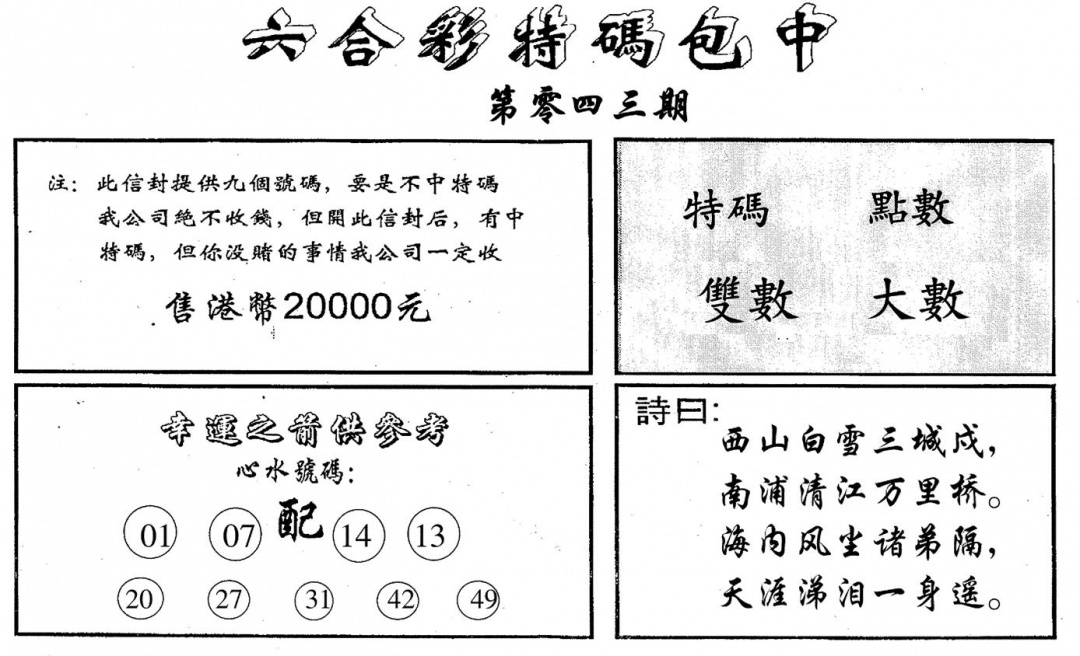 六合彩特碼包中
第零四三期
注：此信封提供九個號碼，要是不中特碼
我公司絕不收錢，但開此信封后，有中
特碼，但你没賭的事情我公司一定收
售港幣20000元
特碼 點數
雙數 大數
幸運之箭供參考
心水號碼：
配
01 07 14 13
20 27 31 42 49
詩曰：
西山白雪三城戍，
南浦清江万里桥。
海内风尘诸弟隔，
天涯涕泪一身遥。